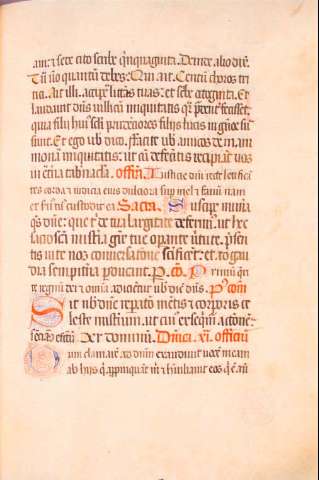 am: et sede cito scribe quinquaginta. Deinde alio dixit
Tu vero quantum debes: Qui ait. Centum choros tri
tici. Ait illi. accipe litteras tuas: et scribe octoginta. Et
laudavit dominus villicum iniquitatis quia prudenter fecisset.
quia filii huius seculi prudentiores filiis lucis in generatione sua
sunt. Et ego vobis dico. facite vobis amicos de mam
mona iniquitatis: ut cum defeceritis recipiant vos
in eterna tabernacula. Offert. Iusticie domini recte letifican
tes corda et iudicia eius dulciora super mel et favum nam
et servus tuus custodit ea Secreta. Suscipe munera
quesumus domine: que tibi de tua largitate deferimus. ut hec
sacrosancta misteria gratie tue operante virtute. presen
tis vite nos conversatione sanctificent. et to gau
dia sempiterna perducant. Per. Co. Primum queri
te regnum dei et omnia adicientur vobis dicit dominus. Postcom
Sit nobis domine reparatio mentis et corporis ce
leste misterium. ut cuius exequimur actionem
senciamus effectum. Per dominum. Dominica xi. officium
Dum clamarem ad dominum exaudivit vocem meam
ab hiis qui appropinquant michi et humiliavit eos qui est an